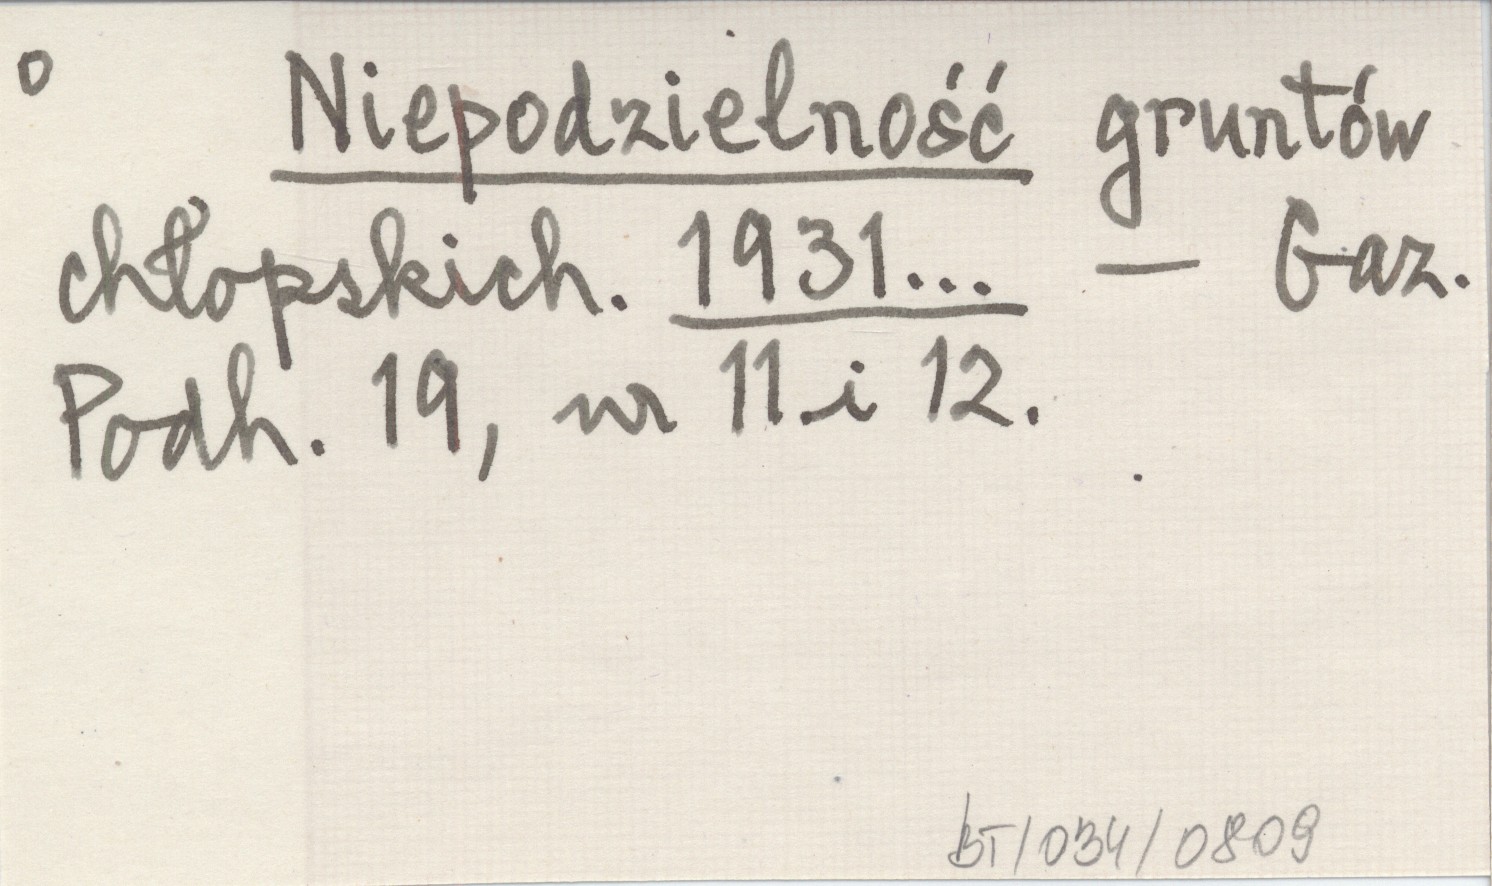 o Niepodzielność gruntów
chłopskich. 1931... — Gaz.
Podh. 19, nr 11 i 12.
BT/034/0809